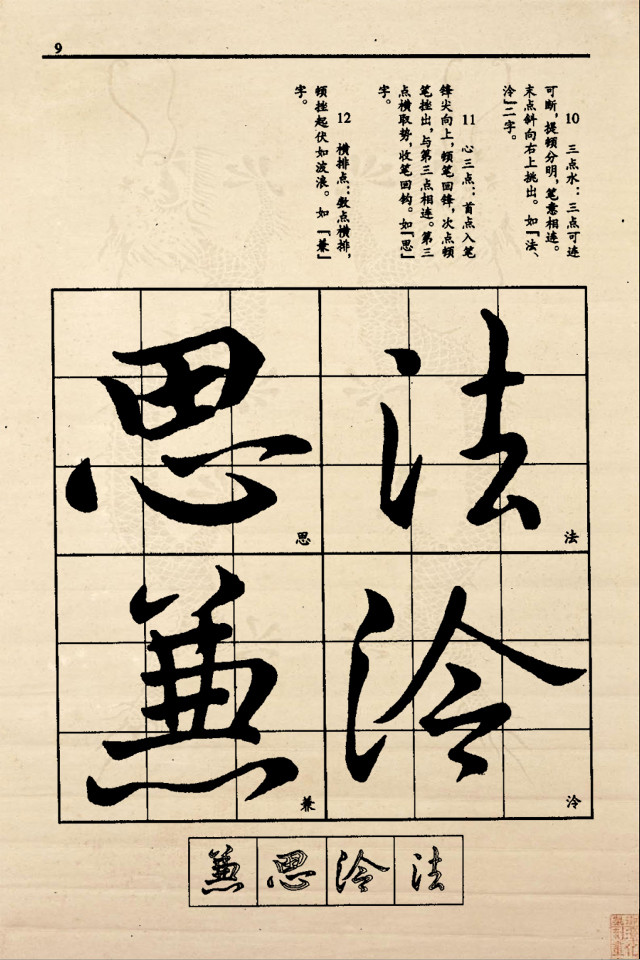 9
10 三点水：三点可连
可断，提顿分明，笔意相连。
末点斜向右上挑出。如「法、
泠」二字。
11 心三点：首点入笔
锋尖向上，顿笔回锋，次点顿
笔挫出，与第三点相连。第三
点横取势，收笔回钩。如「思」
字。
12 横排点：数点横排，
顿挫起伏如波浪。如「兼」
字。
法
法
泠
泠
思
思
兼
兼
兼思泠法